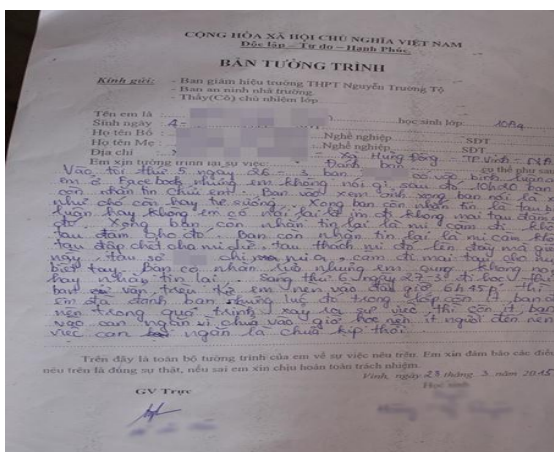 CỘNG HÒA XÃ HỘI CHỦ NGHĨA VIỆT NAM
Độc lập – Tự do – Hạnh Phúc
BẢN TƯỜNG TRÌNH
Kính gửi: - Ban giám hiệu trường THPT Nguyễn Trường Tộ
- Ban an ninh nhà trường.
- Thầy(Cô) chủ nhiệm lớp
Tên em là : học sinh lớp 10A4
Sinh ngày 4-
Họ tên Bố : Nghề nghiệp SĐT
Họ tên Mẹ : Nghề nghiệp SĐT
Địa chỉ X Xã Hưng Đông – TP Vinh – NA
Em xin tường trình lại sự việc: Đánh bạn cụ thể như sau
Vào tối thứ 5 ngày 26 - 3 bạn có vào bình luận
em ở Facebook nhưng em không nói gì, sau đó 10h30 bạn
còn nhắn tin chửi em. Bạn vào xem ảnh xong bạn nói là x
như chó còn hay tự sướng. Xong bạn còn nhắn là tau b
luận hay không em có nói lại là im đi không mai tau đấm
đó. Xong bạn còn nhắn tin lại là mi cấm đi. khô
tau đấm cho đó. bạn còn nhắn tin lại là mi cấm kh
tau đập chết cha mi chừ. tau thách mi đó lên đây mà
này tau sợ chi mi a. cấm đi mai tau cho mi
biết tay. Bạn có nhắn nữa nhưng em không nói
hay nhắn tin lại. Sáng thứ 6 ngày 27-3 đi học thì
bạn vẫn trêu tức em nên vào đầu giờ 6h45p thì
em đã đánh bạn nhưng lúc đó trong lớp còn ít bạn
nên trong quá trình xảy ra sự việc thì còn ít bạn
vào can ngăn vì chưa vào giờ học nên ít người đến nên
việc can ngăn là chưa kịp thời.
Trên đây là toàn bộ tường trình của em về sự việc nêu trên. Em xin đảm bảo các điều
nêu trên là đúng sự thật, nếu sai em xin chịu hoàn toàn trách nhiệm.
Vinh, ngày 23 tháng 3 năm 2015
GV Trực
Học sinh